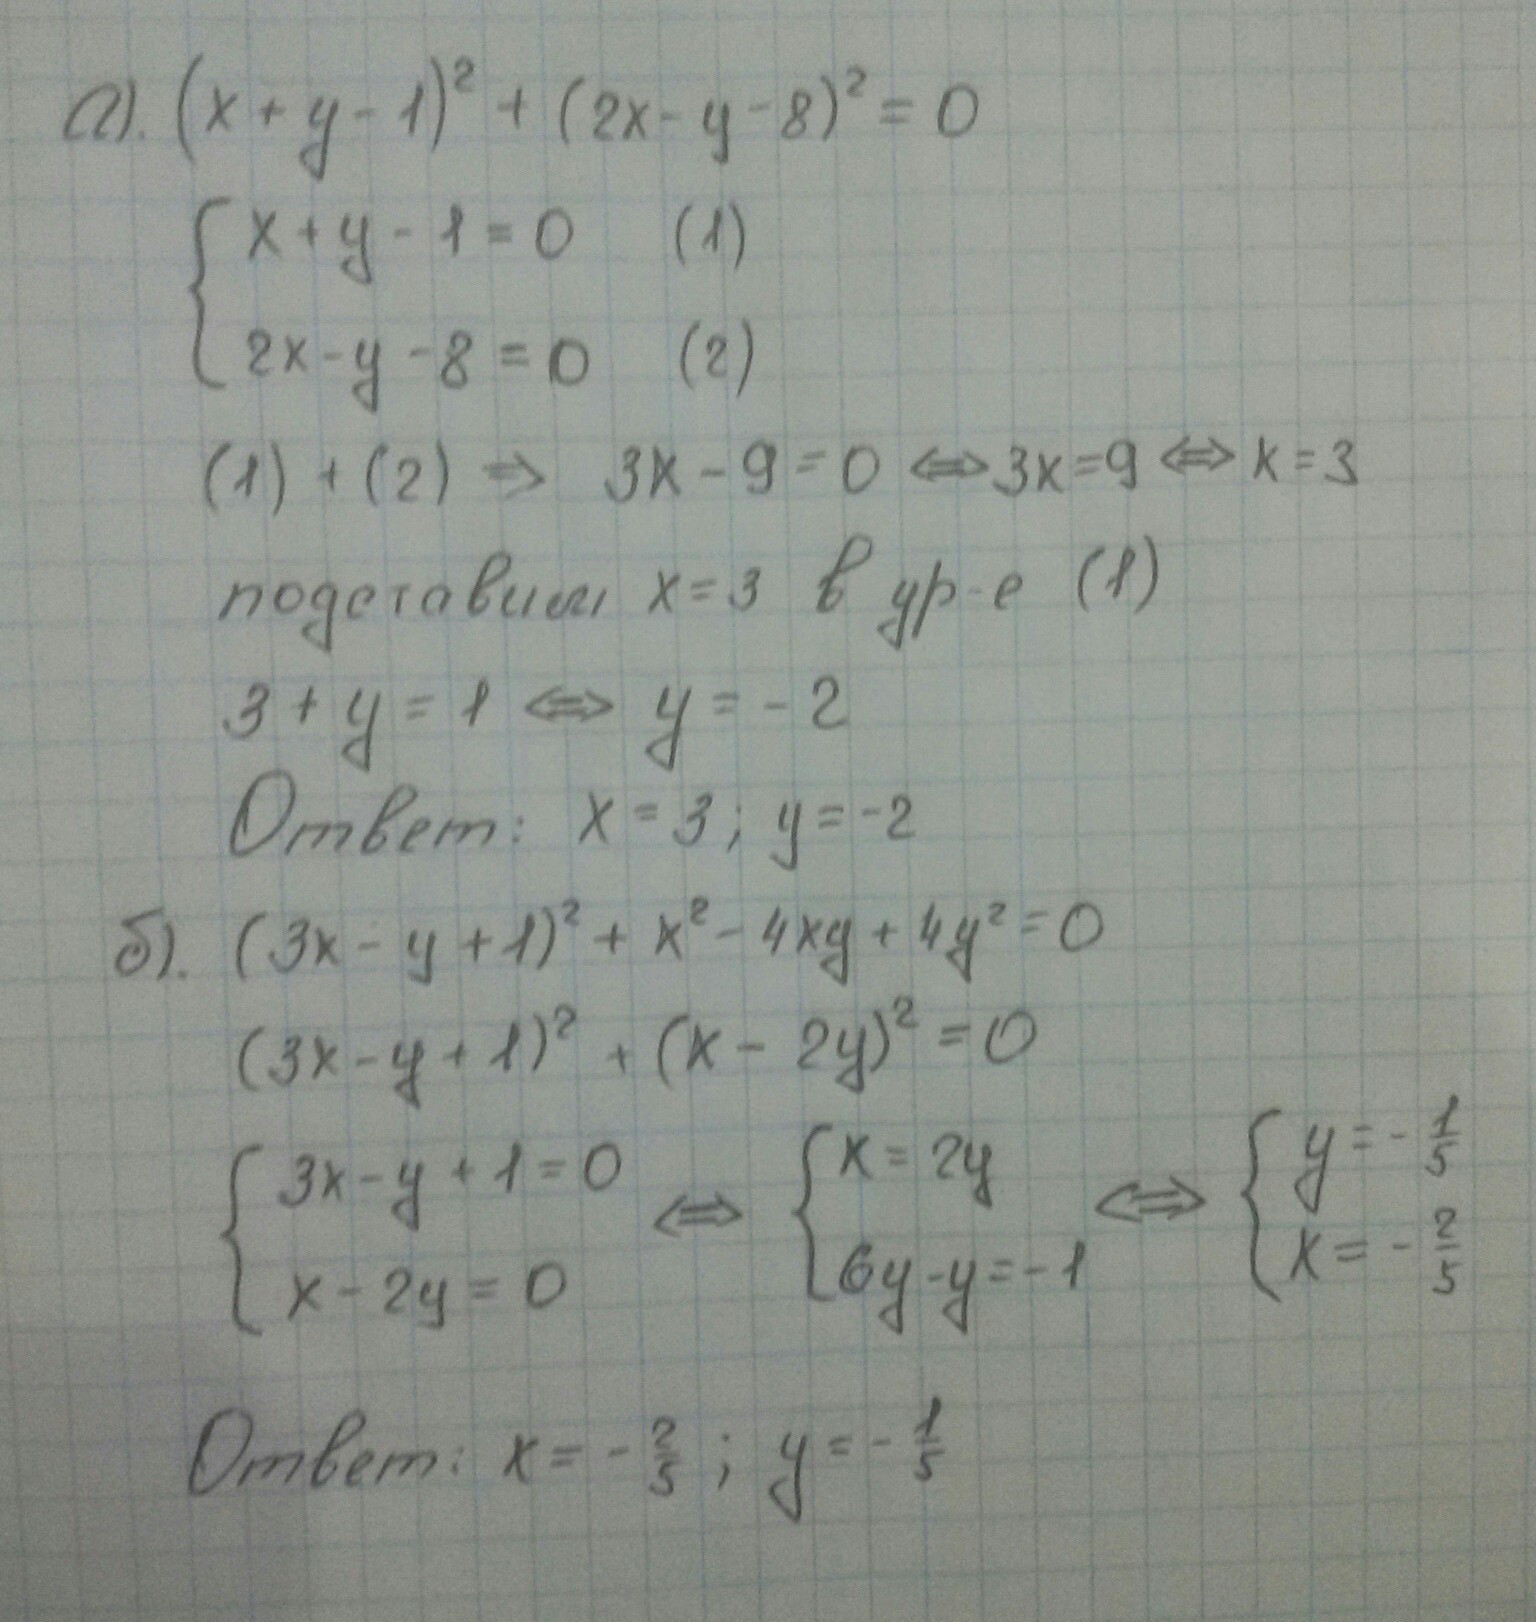 а). (x + y - 1)² + (2x - y - 8)² = 0
{ x + y - 1 = 0 (1)
2x - y - 8 = 0 (2)
(1) + (2) ⇒ 3x - 9 = 0 ⇔ 3x = 9 ⇔ x = 3
подставим x = 3 в ур-е (1)
3 + y = 1 ⇔ y = -2
Ответ: x = 3; y = -2
б). (3x - y + 1)² + x² - 4xy + 4y² = 0
(3x - y + 1)² + (x - 2y)² = 0
{ 3x - y + 1 = 0 ⇔ { x = 2y ⇔ { y = -1/5
x - 2y = 0 6y - y = -1 x = -2/5
Ответ: x = -2/5; y = -1/5